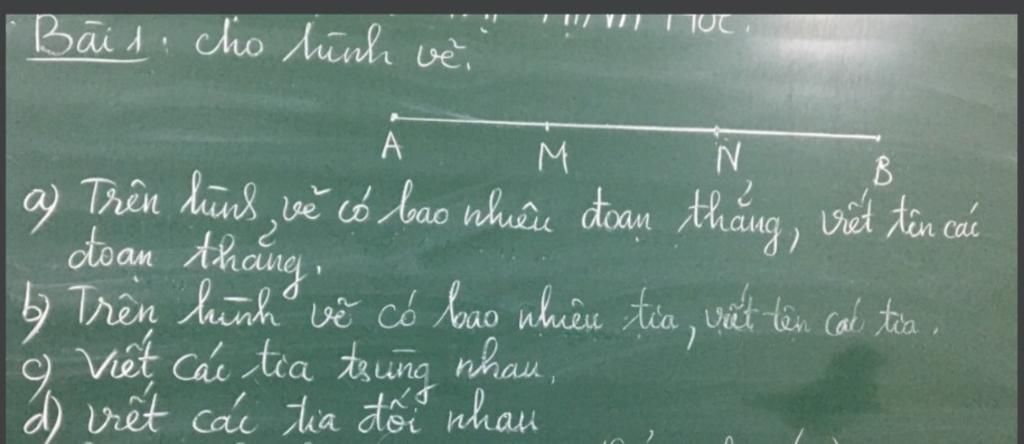 Bài 1: cho hình vẽ.
A M N B
a) Trên hình vẽ có bao nhiêu đoạn thẳng, viết tên các
đoạn thẳng.
b) Trên hình vẽ có bao nhiêu tia, viết tên các tia.
c) Viết các tia trùng nhau.
d) viết các tia đối nhau